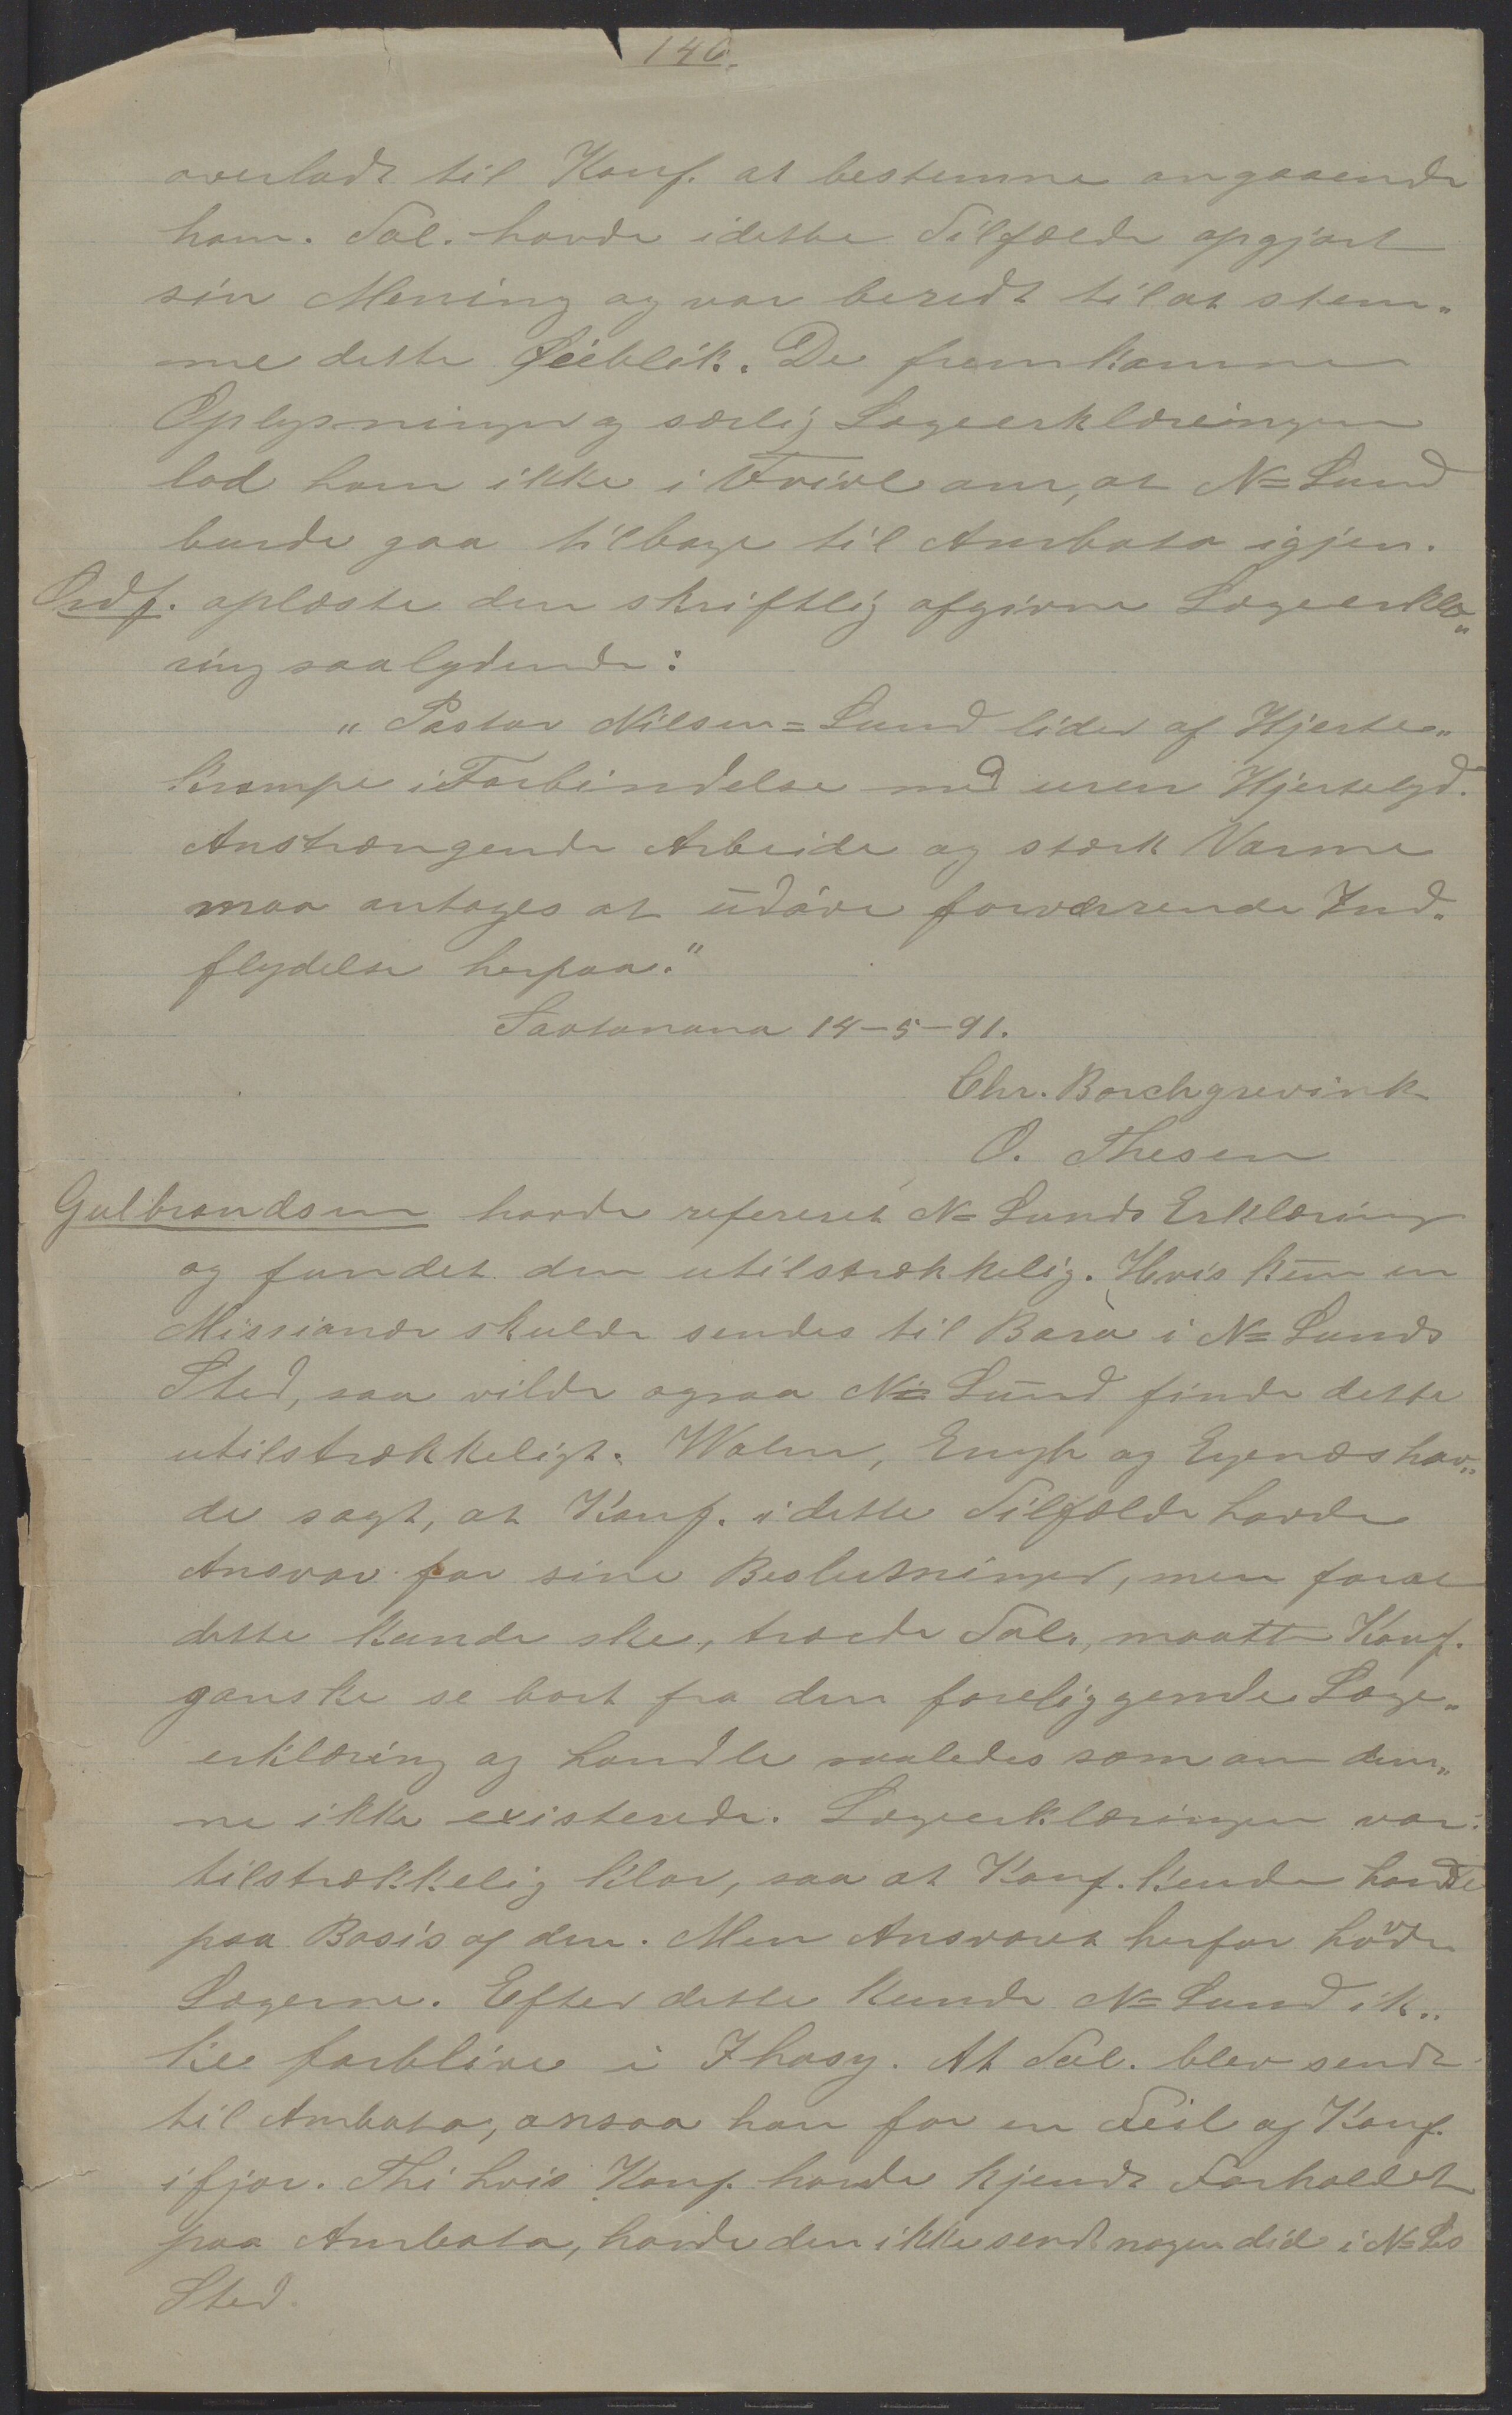 146.
overladt til Konf. at bestemme angaaende
ham. Tal. havde i dette Tilfælde opgjort
sin Mening og var beredt til at stem„
me dette Øieblik. De fremkomne
Oplysninger og særlig Lægeerklæringen
lod ham ikke i Tvivl om, at N=Lund
burde gaa tilbage til Ambato igjen.
Ordf. oplæste den skriftlig afgivne Lægeerklæ„
ring saalydende:
„Pastor Nilsen=Lund lider af Hjerte„
krampe i Forbindelse med uren Hjertelyd.
Anstrængende Arbeide og stærk Varme
maa antages at udöve forværrende Ind„
flydelse herpaa."
Saotanana 14-5-91.
Chr. Borchgrevink
O. Thesen
Gulbrandsen havde refereret N=Lunds Erklæring
og fundet den utilstrækkelig. Hvis kun en
Missionær skulde sendes til Bara i N=Lunds
Sted, saa vilde ogsaa N=Lund finde dette
utilstrækkeligt. Walen, Engh og Egenæs hav„
de sagt, at Konf. i dette Tilfælde havde
Ansvar for sine Beslutninger, men forat
dette kunde ske, troede Tal., maatte Konf.
ganske se bort fra den foreliggende Læge„
erklæring og handle saaledes som om den„
ne ikke existerede. Lægeerklæringen var
tilstrækkelig klar, saa at Konf. kunde handle
paa Basis af den. Men Ansvaret herfor havde
Lægerne. Efter dette kunde N=Lund ik„
ke forblive i Ihosy. At Tal. blev sendt
til Ambato, ansaa han for en Feil af Konf.
ifjor. Thi hvis Konf. havde kjendt Forholdet
paa Ambato, havde den ikke sendt nogen did i N=Ls
Sted.